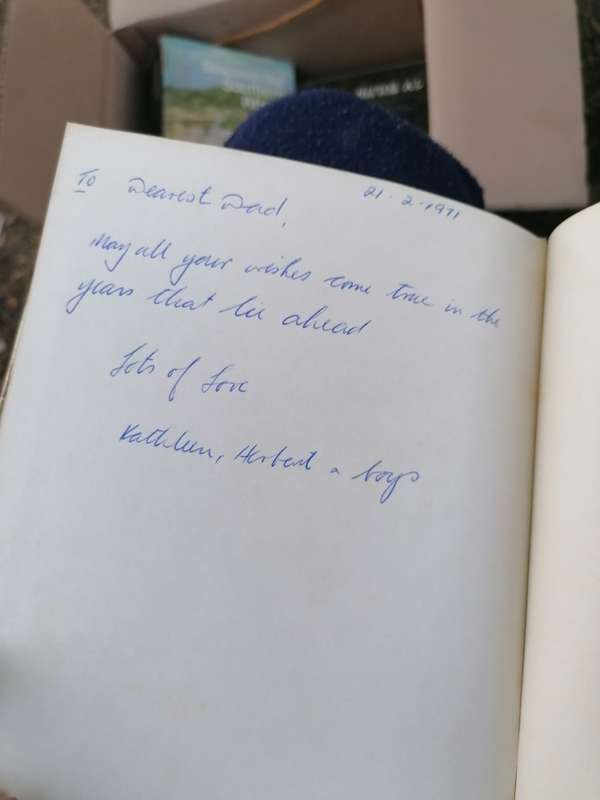 To Dearest Dad,
21-2-1971
May all your wishes come true in the
years that lie ahead
Lots of Love
Kathleen, Herbert & boys